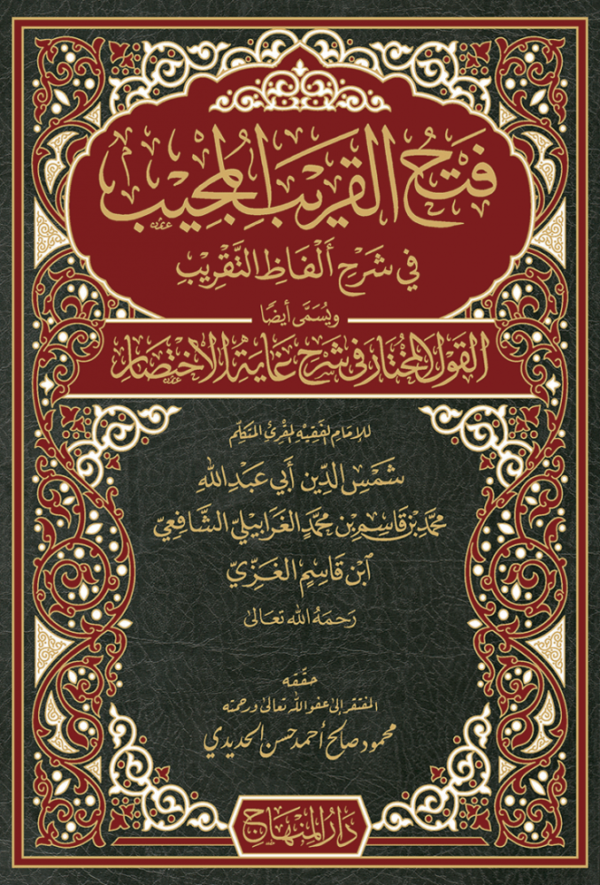 فَتْحُ القَرِيبِ المُجِيبِ
فِي شَرْحِ أَلْفَاظِ التَّقْرِيبِ
ويُسَمَّى أَيضًا
القَوْلُ المُخْتَارُ فِي شَرْحِ غَايَةِ الِاخْتِصَارِ
للإمَامِ الفَقِيهِ المُقْرِئ المُتَكَلِّم
شَمْسِ الدِّين أَبِي عَبْدِ اللهِ
مُحَمَّدِ بْنِ قَاسِمِ بْنِ مُحَمَّدٍ الغَرَابِيلِيِّ الشَّافِعِيِّ
ٱبْن قَاسِمٍ الغَزِّيّ
رَحِمَهُ الله تَعَالَى
حقّقه
المفتقر إلى عفو الله تعالى ورحمته
محمود صالح أحمد حسن الحديدي
دَارُ المِنْهَاجِ